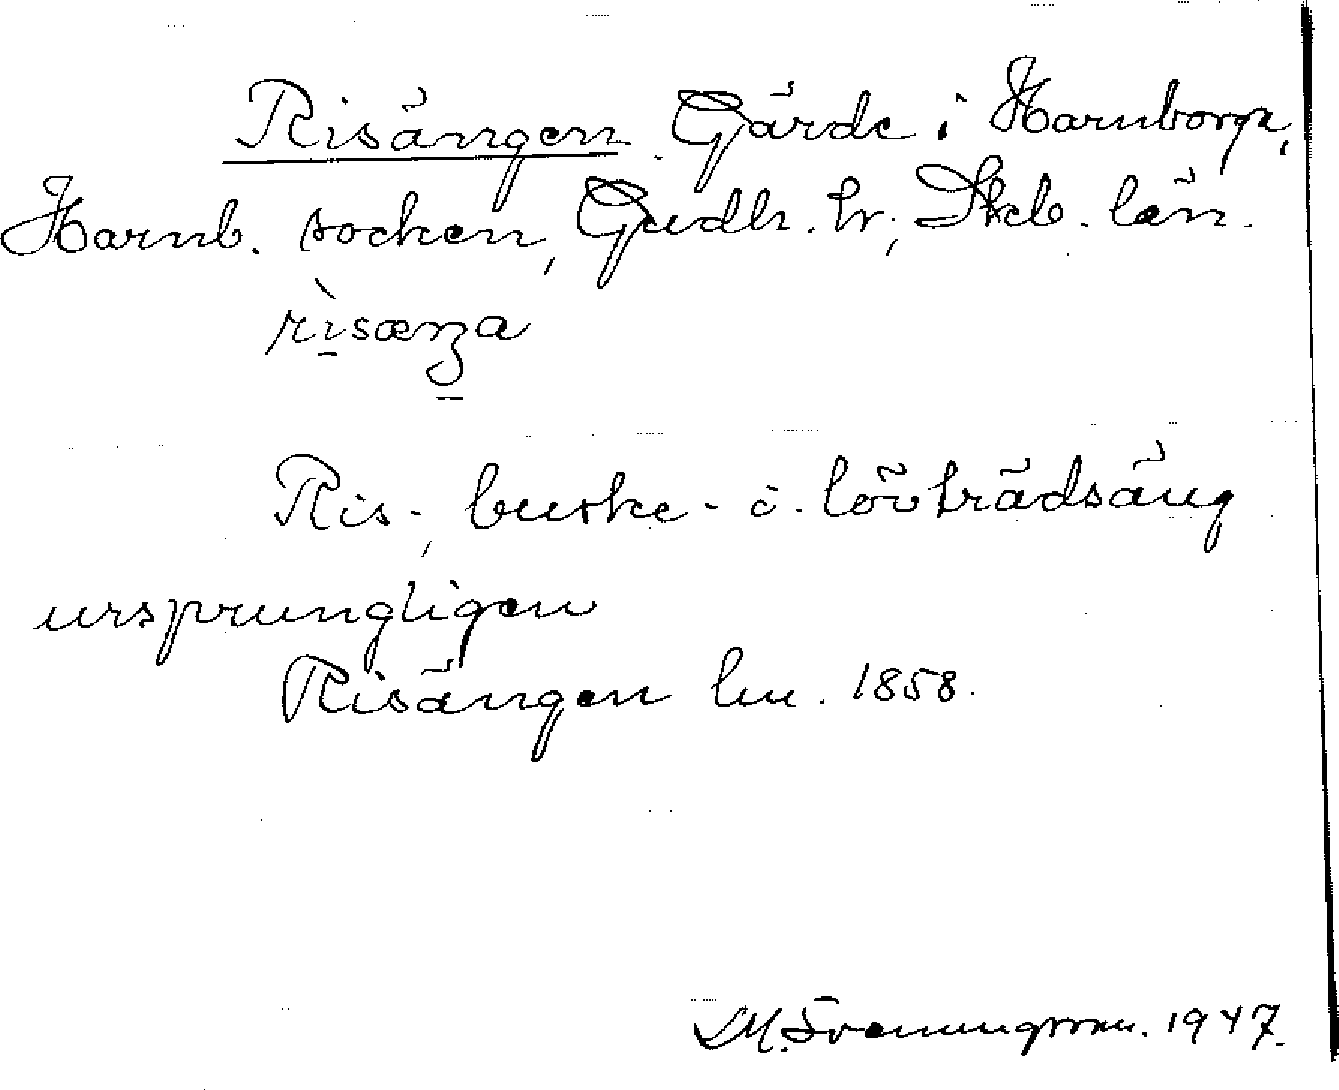 Risängen. Gärde i Harnborga,
Harnb. socken, Gudh. hr, Skb. län.
rìsæŋa
Ris-, buske- o. lövträdsäng
ursprungligen
Risängen lm. 1858.
1947.